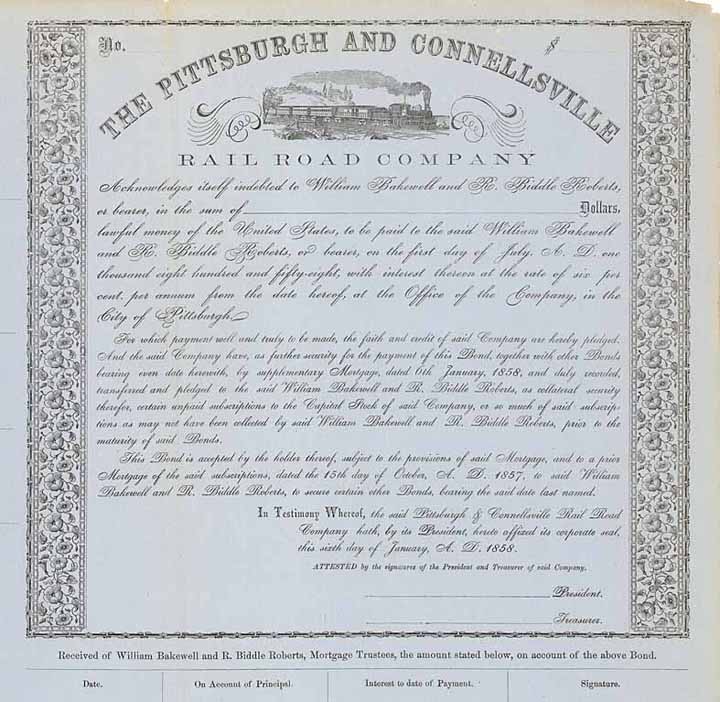 No. $
THE PITTSBURGH AND CONNELLSVILLE
RAIL ROAD COMPANY
Acknowledges itself indebted to William Bakewell and R. Biddle Roberts,
or bearer, in the sum of Dollars,
lawful money of the United States, to be paid to the said William Bakewell
and R. Biddle Roberts, or bearer, on the first day of July, A. D. one
thousand eight hundred and fifty-eight, with interest thereon at the rate of six per
cent. per annum from the date hereof, at the Office of the Company, in the
City of Pittsburgh.
For which payment well and truly to be made, the faith and credit of said Company are hereby pledged.
And the said Company have, as further security for the payment of this Bond, together with other Bonds
bearing even date herewith, by supplementary Mortgage, dated 6th January, 1858, and duly recorded,
transferred and pledged to the said William Bakewell and R. Biddle Roberts, as collateral security
therefor, certain unpaid subscriptions to the Capital Stock of said Company, or so much of said subscrip-
tions as may not have been collected by said William Bakewell and R. Biddle Roberts, prior to the
maturity of said Bonds.
This Bond is accepted by the holder thereof, subject to the provisions of said Mortgage, and to a prior
Mortgage of the said subscriptions, dated the 15th day of October, A. D. 1857, to said William
Bakewell and R. Biddle Roberts, to secure certain other Bonds, bearing the said date last named.
In Testimony Whereof, the said Pittsburgh & Connellsville Rail Road
Company hath, by its President, hereto affixed its corporate seal,
this sixth day of January, A. D. 1858.
ATTESTED by the signatures of the President and Treasurer of said Company.
President.
Treasurer.
Received of William Bakewell and R. Biddle Roberts, Mortgage Trustees, the amount stated below, on account of the above Bond.
Date. On Account of Principal. Interest to date of Payment. Signature.